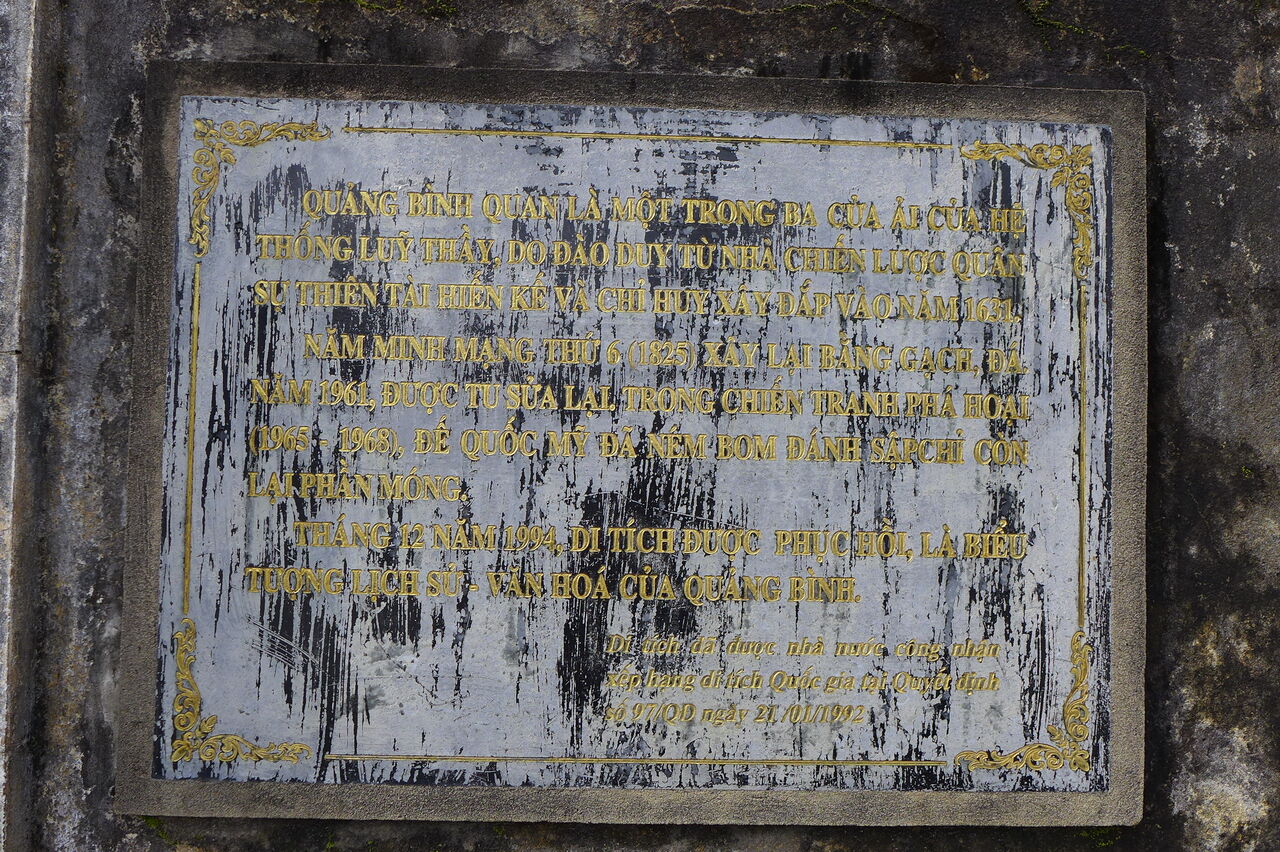 QUẢNG BÌNH QUAN LÀ MỘT TRONG BA CỬA ẢI CỦA HỆ
THỐNG LUỸ THẦY, DO ĐÀO DUY TỪ NHÀ CHIẾN LƯỢC QUÂN
SỰ THIÊN TÀI HIẾN KẾ VÀ CHỈ HUY XÂY ĐẮP VÀO NĂM 1631.
NĂM MINH MẠNG THỨ 6 (1825) XÂY LẠI BẰNG GẠCH, ĐÁ.
NĂM 1961, ĐƯỢC TU SỬA LẠI. TRONG CHIẾN TRANH PHÁ HOẠI
(1965 - 1968), ĐẾ QUỐC MỸ ĐÃ NÉM BOM ĐÁNH SẬPCHỈ CÒN
LẠI PHẦN MÓNG.
THÁNG 12 NĂM 1994, DI TÍCH ĐƯỢC PHỤC HỒI, LÀ BIỂU
TƯỢNG LỊCH SỬ - VĂN HOÁ CỦA QUẢNG BÌNH.
Di tích đã được nhà nước công nhận
xếp hạng di tích Quốc gia tại Quyết định
số 97/QĐ ngày 21/01/1992